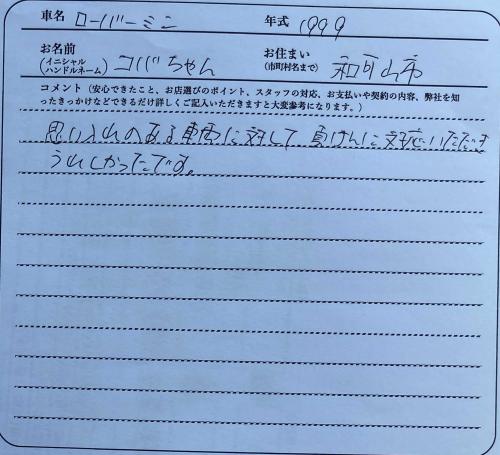 車名 ローバーミニ 年式 1999
お名前 (イニシャル ハンドルネーム) コバちゃん お住まい (市町村名まで) 和歌山市
コメント（安心できたこと、お店選びのポイント、スタッフの対応、お支払いや契約の内容、弊社を知
ったきっかけなどできるだけ詳しくご記入いただきますと大変参考になります。）
思い入れのある車両に対して 真けんに対応いただき
うれしかったです。